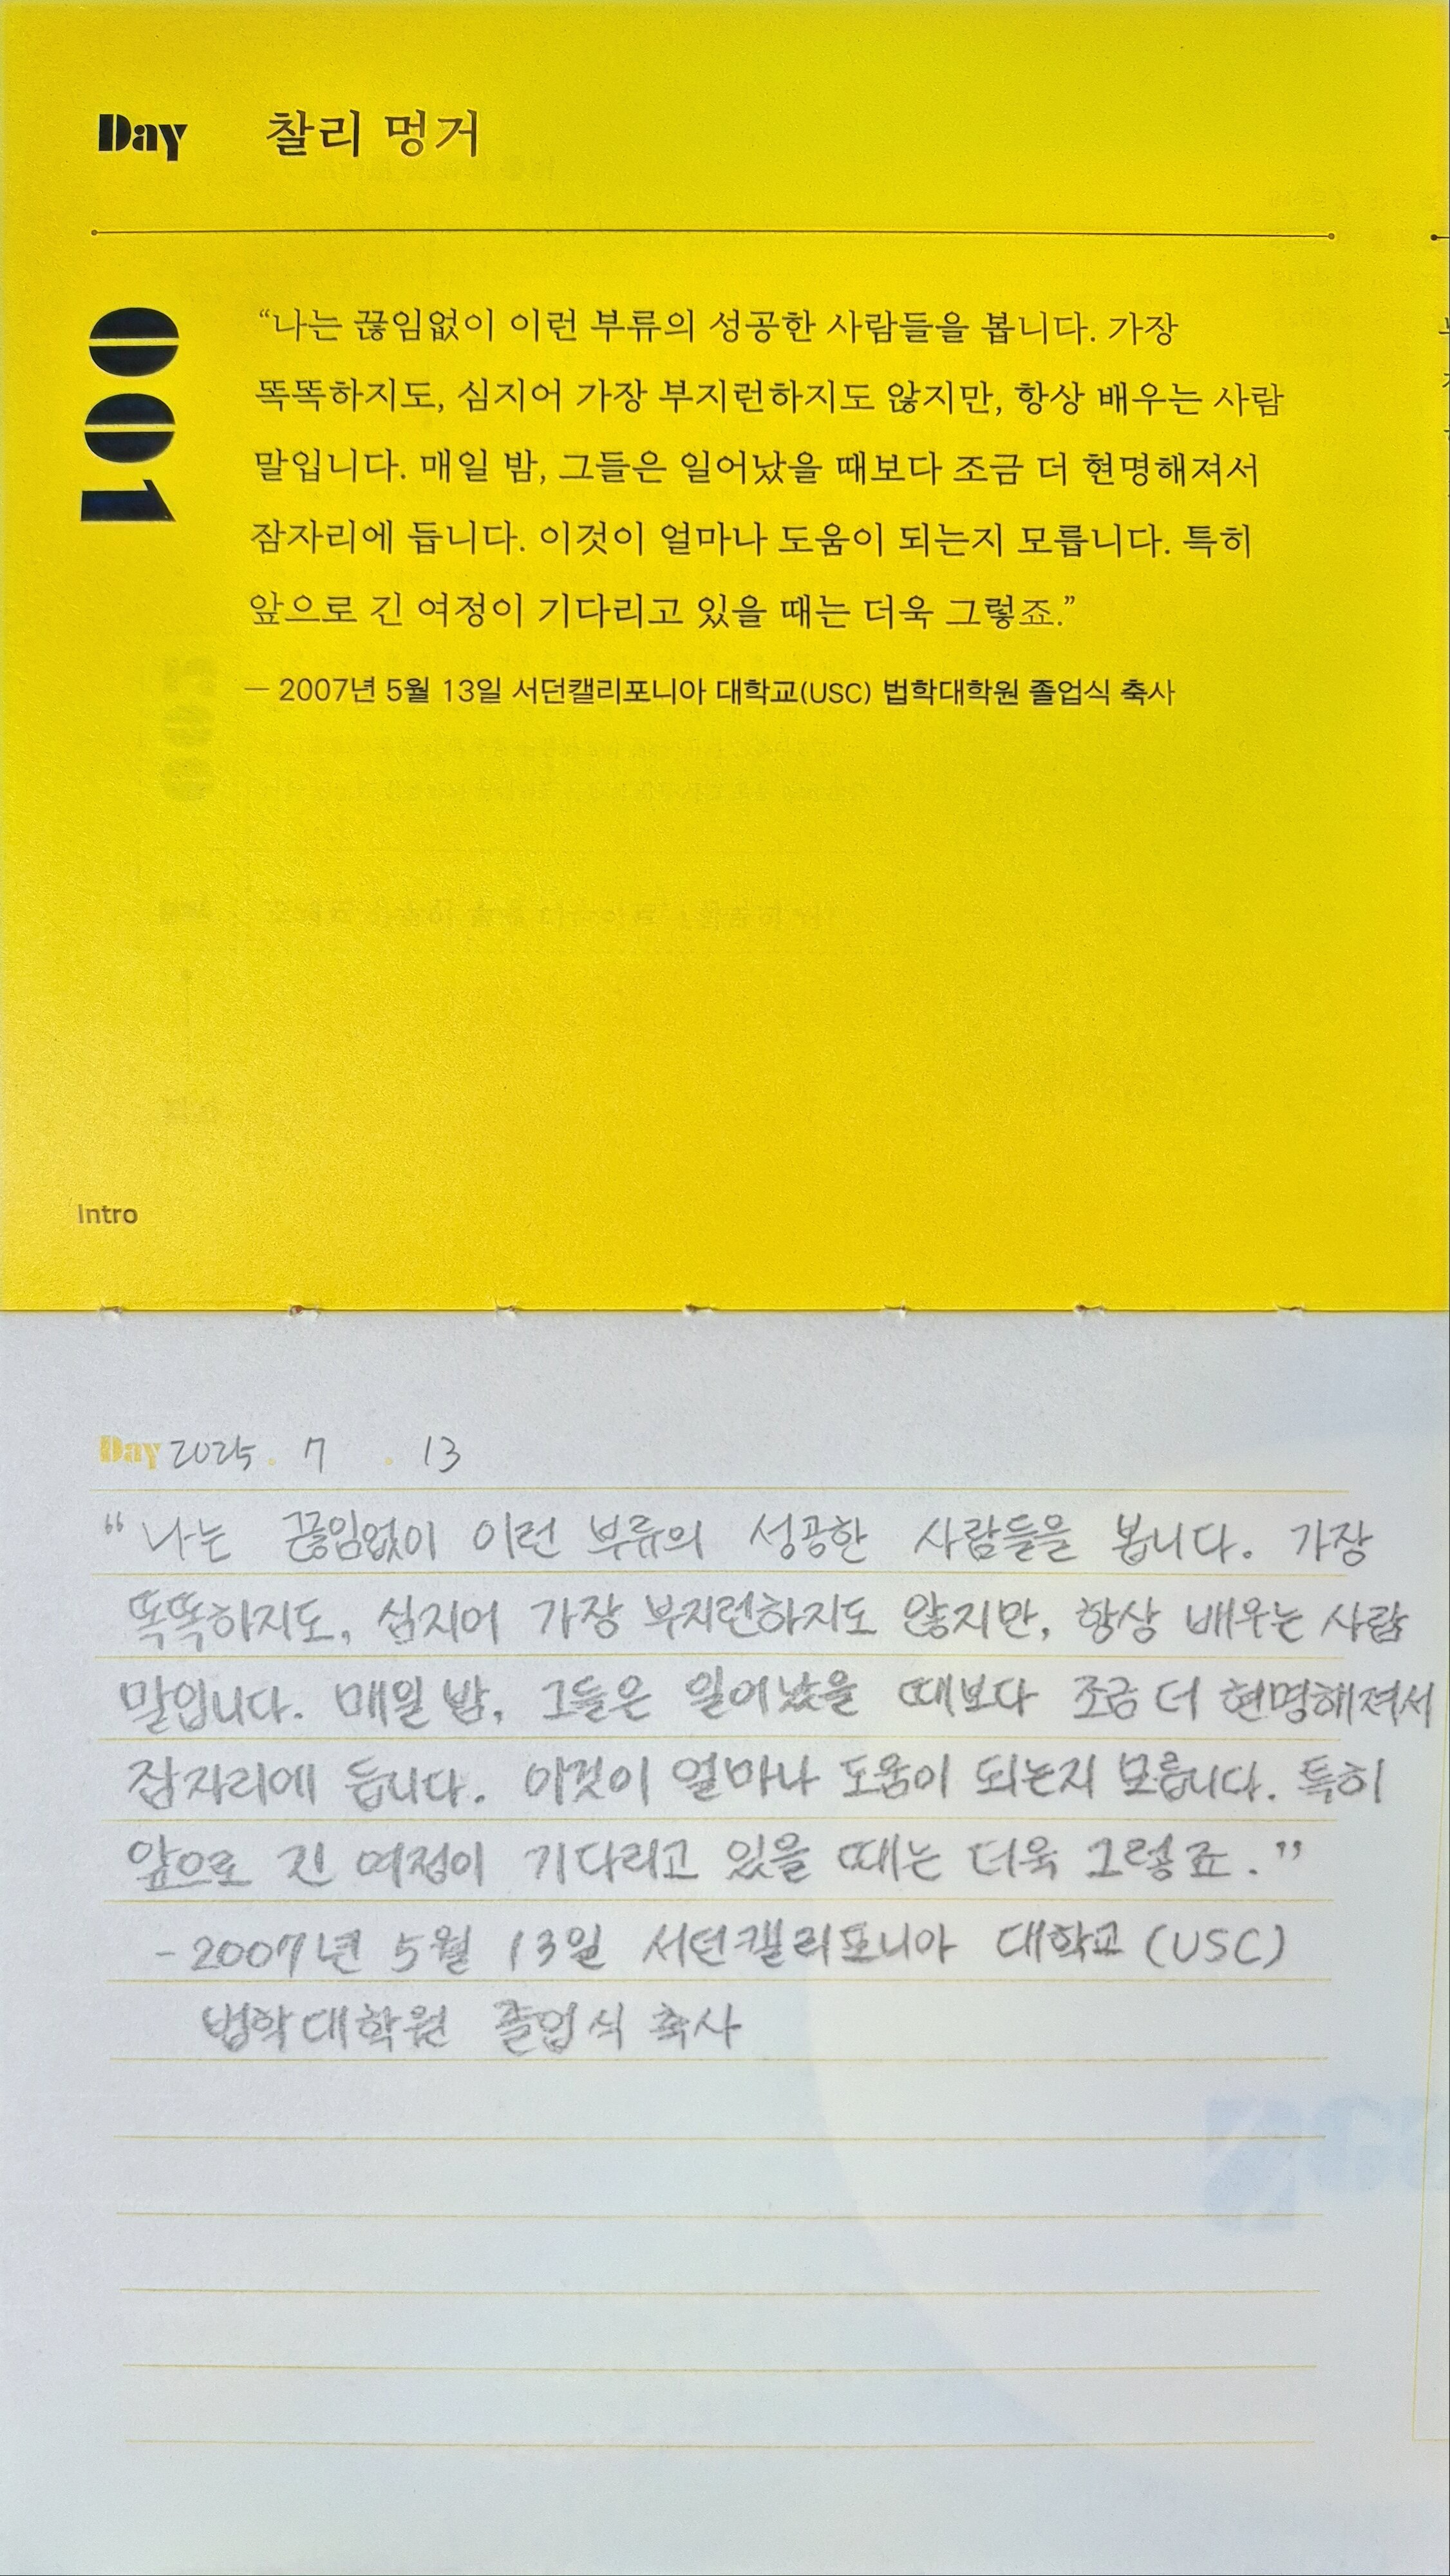 Day 찰리 멍거
001
“나는 끊임없이 이런 부류의 성공한 사람들을 봅니다. 가장
똑똑하지도, 심지어 가장 부지런하지도 않지만, 항상 배우는 사람
말입니다. 매일 밤, 그들은 일어났을 때보다 조금 더 현명해져서
잠자리에 듭니다. 이것이 얼마나 도움이 되는지 모릅니다. 특히
앞으로 긴 여정이 기다리고 있을 때는 더욱 그렇죠.”
— 2007년 5월 13일 서던캘리포니아 대학교(USC) 법학대학원 졸업식 축사
Intro
Day 2025. 7 . 13
“나는 끊임없이 이런 부류의 성공한 사람들을 봅니다. 가장
똑똑하지도, 심지어 가장 부지런하지도 않지만, 항상 배우는 사람
말입니다. 매일 밤, 그들은 일어났을 때보다 조금 더 현명해져서
잠자리에 듭니다. 이것이 얼마나 도움이 되는지 모릅니다. 특히
앞으로 긴 여정이 기다리고 있을 때는 더욱 그렇죠.”
- 2007년 5월 13일 서던캘리포니아 대학교(USC)
법학대학원 졸업식 축사